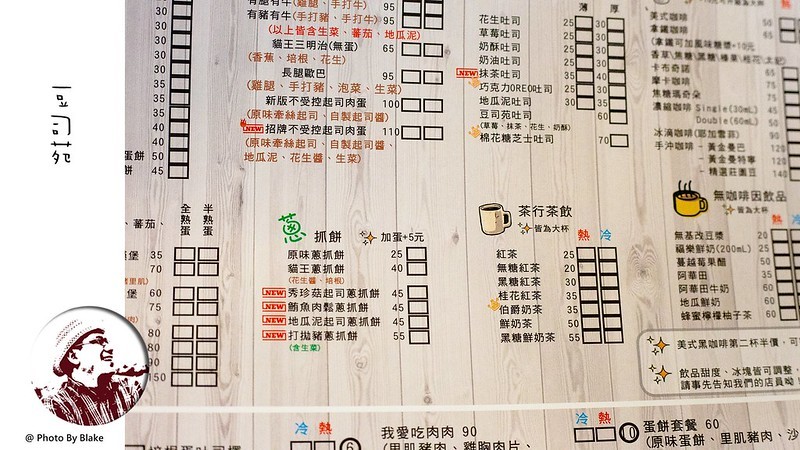 豆司苑
@ Photo By Blake
有豬有牛(手打豬、手打牛) 95
(以上皆含生菜、蕃茄、地瓜泥)
貓王三明治(無蛋) 65
(香蕉、培根、花生)
長腿歐巴 95
(雞腿、手打豬、泡菜、生菜)
新版不受控起司肉蛋 100
(原味牽絲起司、自製起司醬)
NEW 招牌不受控起司肉蛋 110
(原味牽絲起司、自製起司醬、
地瓜泥、花生醬、生菜)
薄 厚
花生吐司 25 30
草莓吐司 25 30
奶酥吐司 25 30
奶油吐司 25 30
NEW 抹茶吐司 35 40
巧克力OREO吐司 25 30
地瓜泥吐司 25 30
豆司苑吐司 60
(草莓、抹茶、花生、奶酥)
棉花糖芝士吐司 70
美式咖啡
拿鐵咖啡
(拿鐵可加風味糖漿+10元
卡布奇諾 65
摩卡咖啡
焦糖瑪奇朵
濃縮咖啡 Single(30mL) 45
Double(60mL) 50
冰滴咖啡(耶加雪菲) 90
手沖咖啡 - 黃金曼巴
- 黃金曼特寧
- 精選莊園豆
全熟蛋 半熟蛋
蔥 抓餅 加蛋+5元
原味蔥抓餅 25
貓王蔥抓餅 40
(花生醬、培根)
NEW 秀珍菇起司蔥抓餅 45
NEW 鮪魚肉鬆蔥抓餅 45
NEW 地瓜泥起司蔥抓餅 45
NEW 打拋豬蔥抓餅 55
(含生菜)
茶行茶飲
皆為大杯
熱 冷
紅茶 20
無糖紅茶 20
黑糖紅茶 30
桂花紅茶 35
伯爵奶茶 35
鮮奶茶 50
黑糖鮮奶茶 55
無咖啡因飲品
皆為大杯
無基改豆漿 20
福樂鮮奶(200mL) 25
蔓越莓果醋
阿華田
阿華田牛奶
地瓜鮮奶
蜂蜜檸檬柚子茶
美式黑咖啡第二杯半價,可
飲品甜度、冰塊皆可調整,
請事先告知我們的店員呦
冷 熱
我愛吃肉肉 90
(里肌豬肉、雞胸肉片、
冷 熱
10 蛋餅套餐 60
(原味蛋餅、里肌豬肉、沙